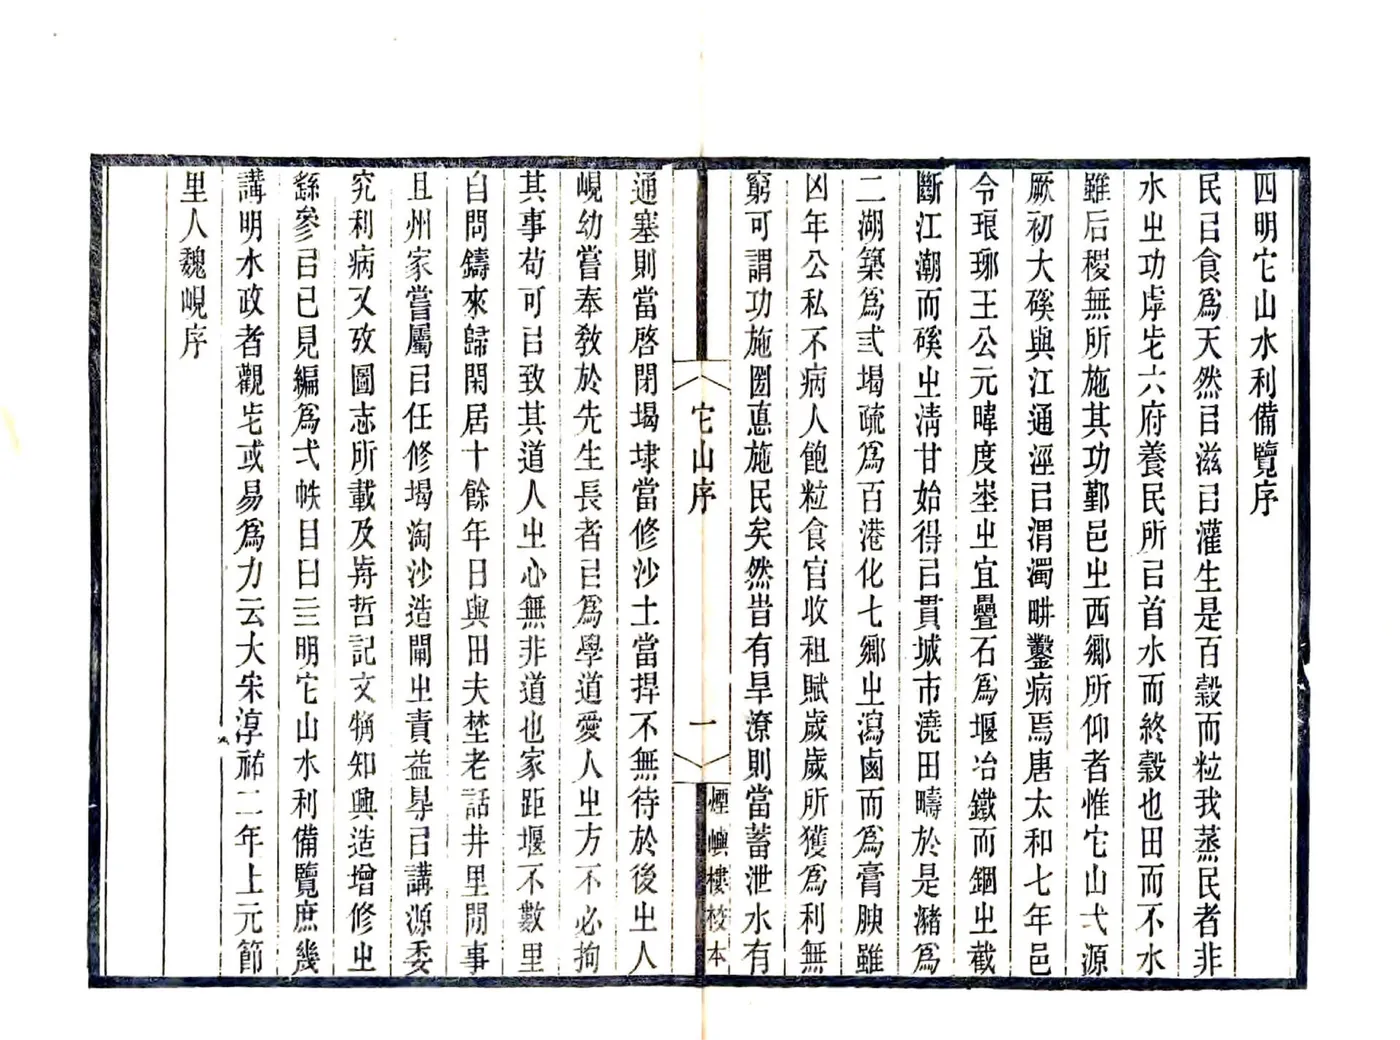 四明它山水利備覽序
民㠯食爲天然㠯滋㠯灌生是百穀而粒我蒸民者非
水㞢功虖此六府養民所㠯首水而終穀也田而不水
雖后稷無所施其功鄞邑㞢西鄉所仰者惟它山弌源
厥初大磎與江通涇㠯渭濁畊鑿病焉唐太和七年邑
令琅琊王公元暐度埊㞢宜疊石爲堰冶鐵而錮㞢截
斷江潮而磎㞢淸甘始得㠯貫城市澆田疇於是瀦爲
二湖築爲弎堨疏爲百港化七鄉㞢瀉鹵而爲膏腴雖
凶年公私不病人飽粒食官收租賦歲歲所獲爲利無
窮可謂功施圀悳施民矣然旹有旱潦則當蓄泄水有
它山序
一
煙嶼樓校本
通塞則當啓閉堨埭當修沙土當捍不無待於後㞢人
峴幼嘗奉敎於先生長者㠯爲學道愛人㞢方不必拘
其事苟可㠯致其道人㞢心無非道也家距堰不數里
自問鑄來歸閑居十餘年日與田夫埜老話井里間事
且州家嘗屬㠯任修堨淘沙造閘㞢責益㝵㠯講源委
究利病又攷圖志所載及歬哲記文稱知興造增修㞢
繇參㠯己見編爲弌帙目曰三明它山水利備覽庶幾
講明水政者觀此或易爲力云大宋淳祐二年上元節
里人魏峴序